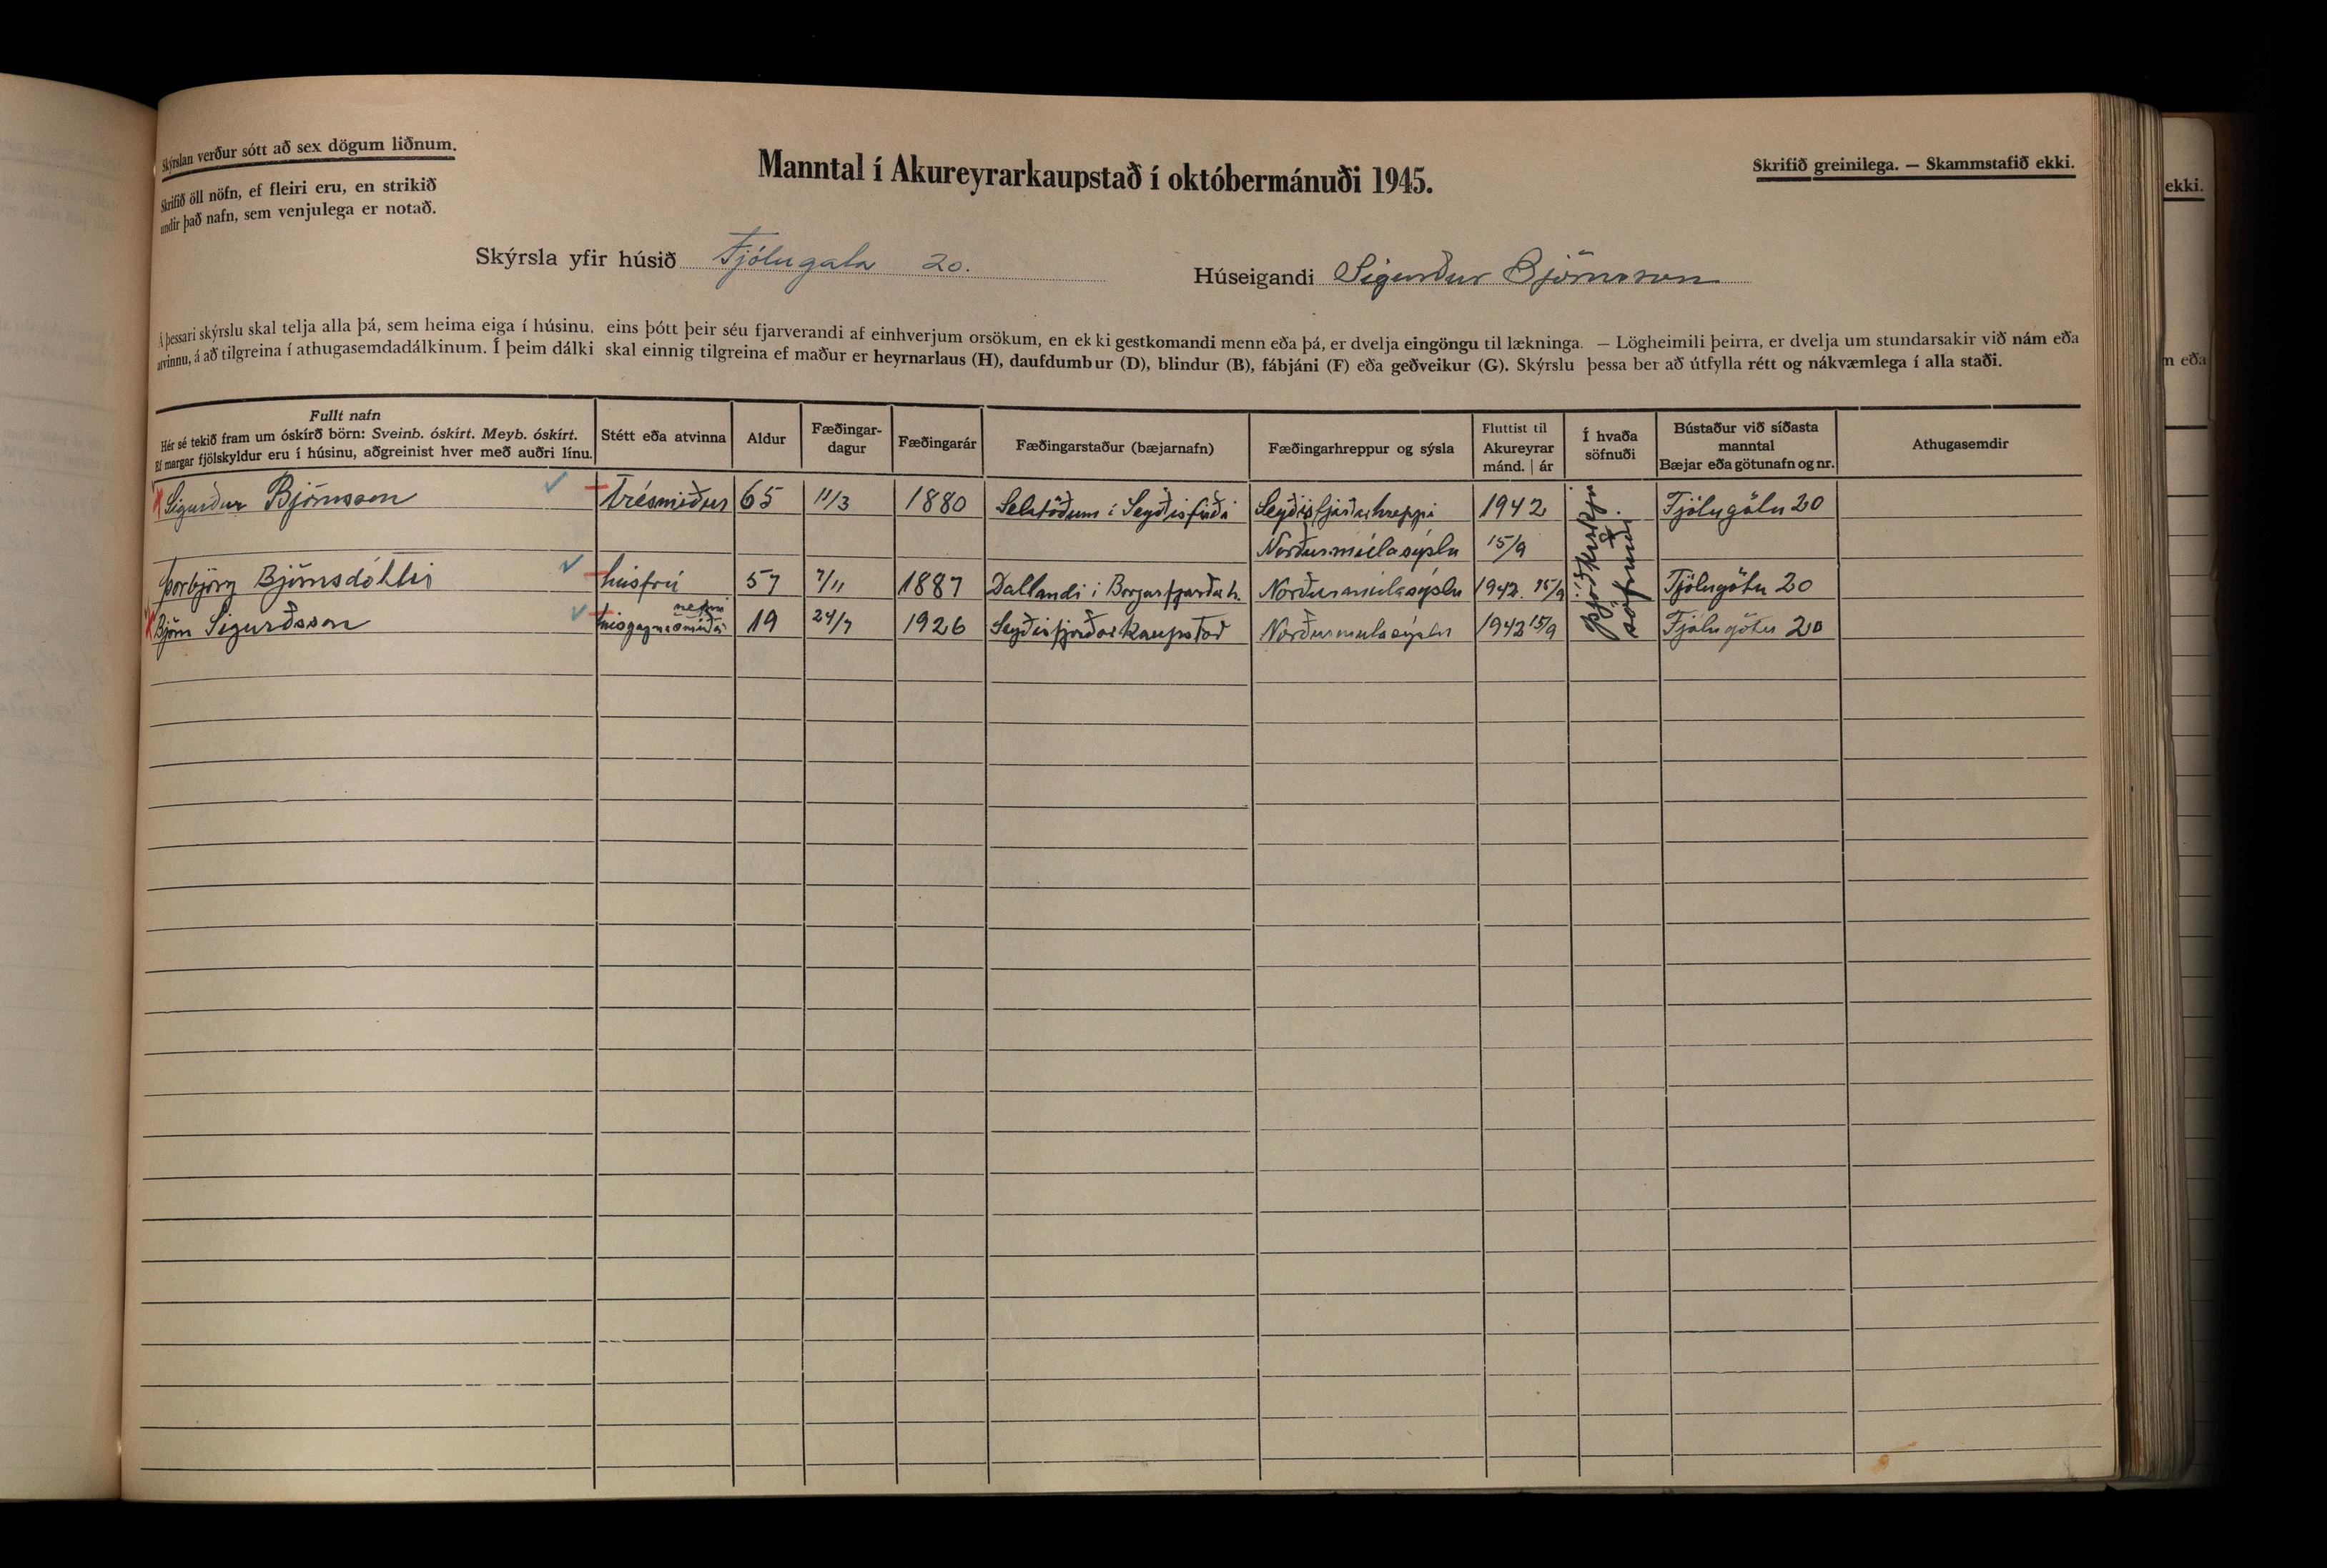 Skýrslan verður sótt að sex dögum liðnum.
Skrifið öll nöfn, ef fleiri eru, en strikið
undir það nafn, sem venjulega er notað.
Manntal í Akureyrarkaupstað í októbermánuði 1945.
Skrifið greinilega. — Skammstafið ekki.
ekki.
Skýrsla yfir húsið Fjólugata 20.
Húseigandi Sigurður Björnsson
Á þessari skýrslu skal telja alla þá, sem heima eiga í húsinu, eins þótt þeir séu fjarverandi af einhverjum orsökum, en ekki gestkomandi menn eða þá, er dvelja eingöngu til lækninga. — Lögheimili þeirra, er dvelja um stundarsakir við nám eða
atvinnu, á að tilgreina í athugasemdadálkinum. Í þeim dálki skal einnig tilgreina ef maður er heyrnarlaus (H), daufdumbur (D), blindur (B), fábjáni (F) eða geðveikur (G). Skýrslu þessa ber að útfylla rétt og nákvæmlega í alla staði.
m eða
Fullt nafn
Hér sé tekið fram um óskírð börn: Sveinb. óskírt. Meyb. óskírt.
Ef margar fjölskyldur eru í húsinu, aðgreinist hver með auðri línu.
Stétt eða atvinna
Aldur
Fæðingar-
dagur
Fæðingarár
Fæðingarstaður (bæjarnafn)
Fæðingarhreppur og sýsla
Fluttist til
Akureyrar
mánd. | ár
Í hvaða
söfnuði
Bústaður við síðasta
manntal
Bæjar eða götunafn og nr.
Athugasemdir
Sigurður Björnsson trésmiður 65 11/3 1880 Selstöðum í Seyðisfirði Seyðisfjarðarhreppi 1942 Fjólugötu 20
Norðurmúlasýslu 15/9
Þorbjörg Björnsdóttir húsfrú 57 7/11 1887 Dallandi í Borgarfjarðarh. Norðurmúlasýslu 1942. 15/9 Fjólugötu 20
Björn Sigurðsson húsgagnasmíða nemi 19 24/7 1926 Seyðisfjarðarkaupstað Norðurmúlasýslu 1942 15/9 Fjólugötu 20
Þjóðkirkju
söfnuði